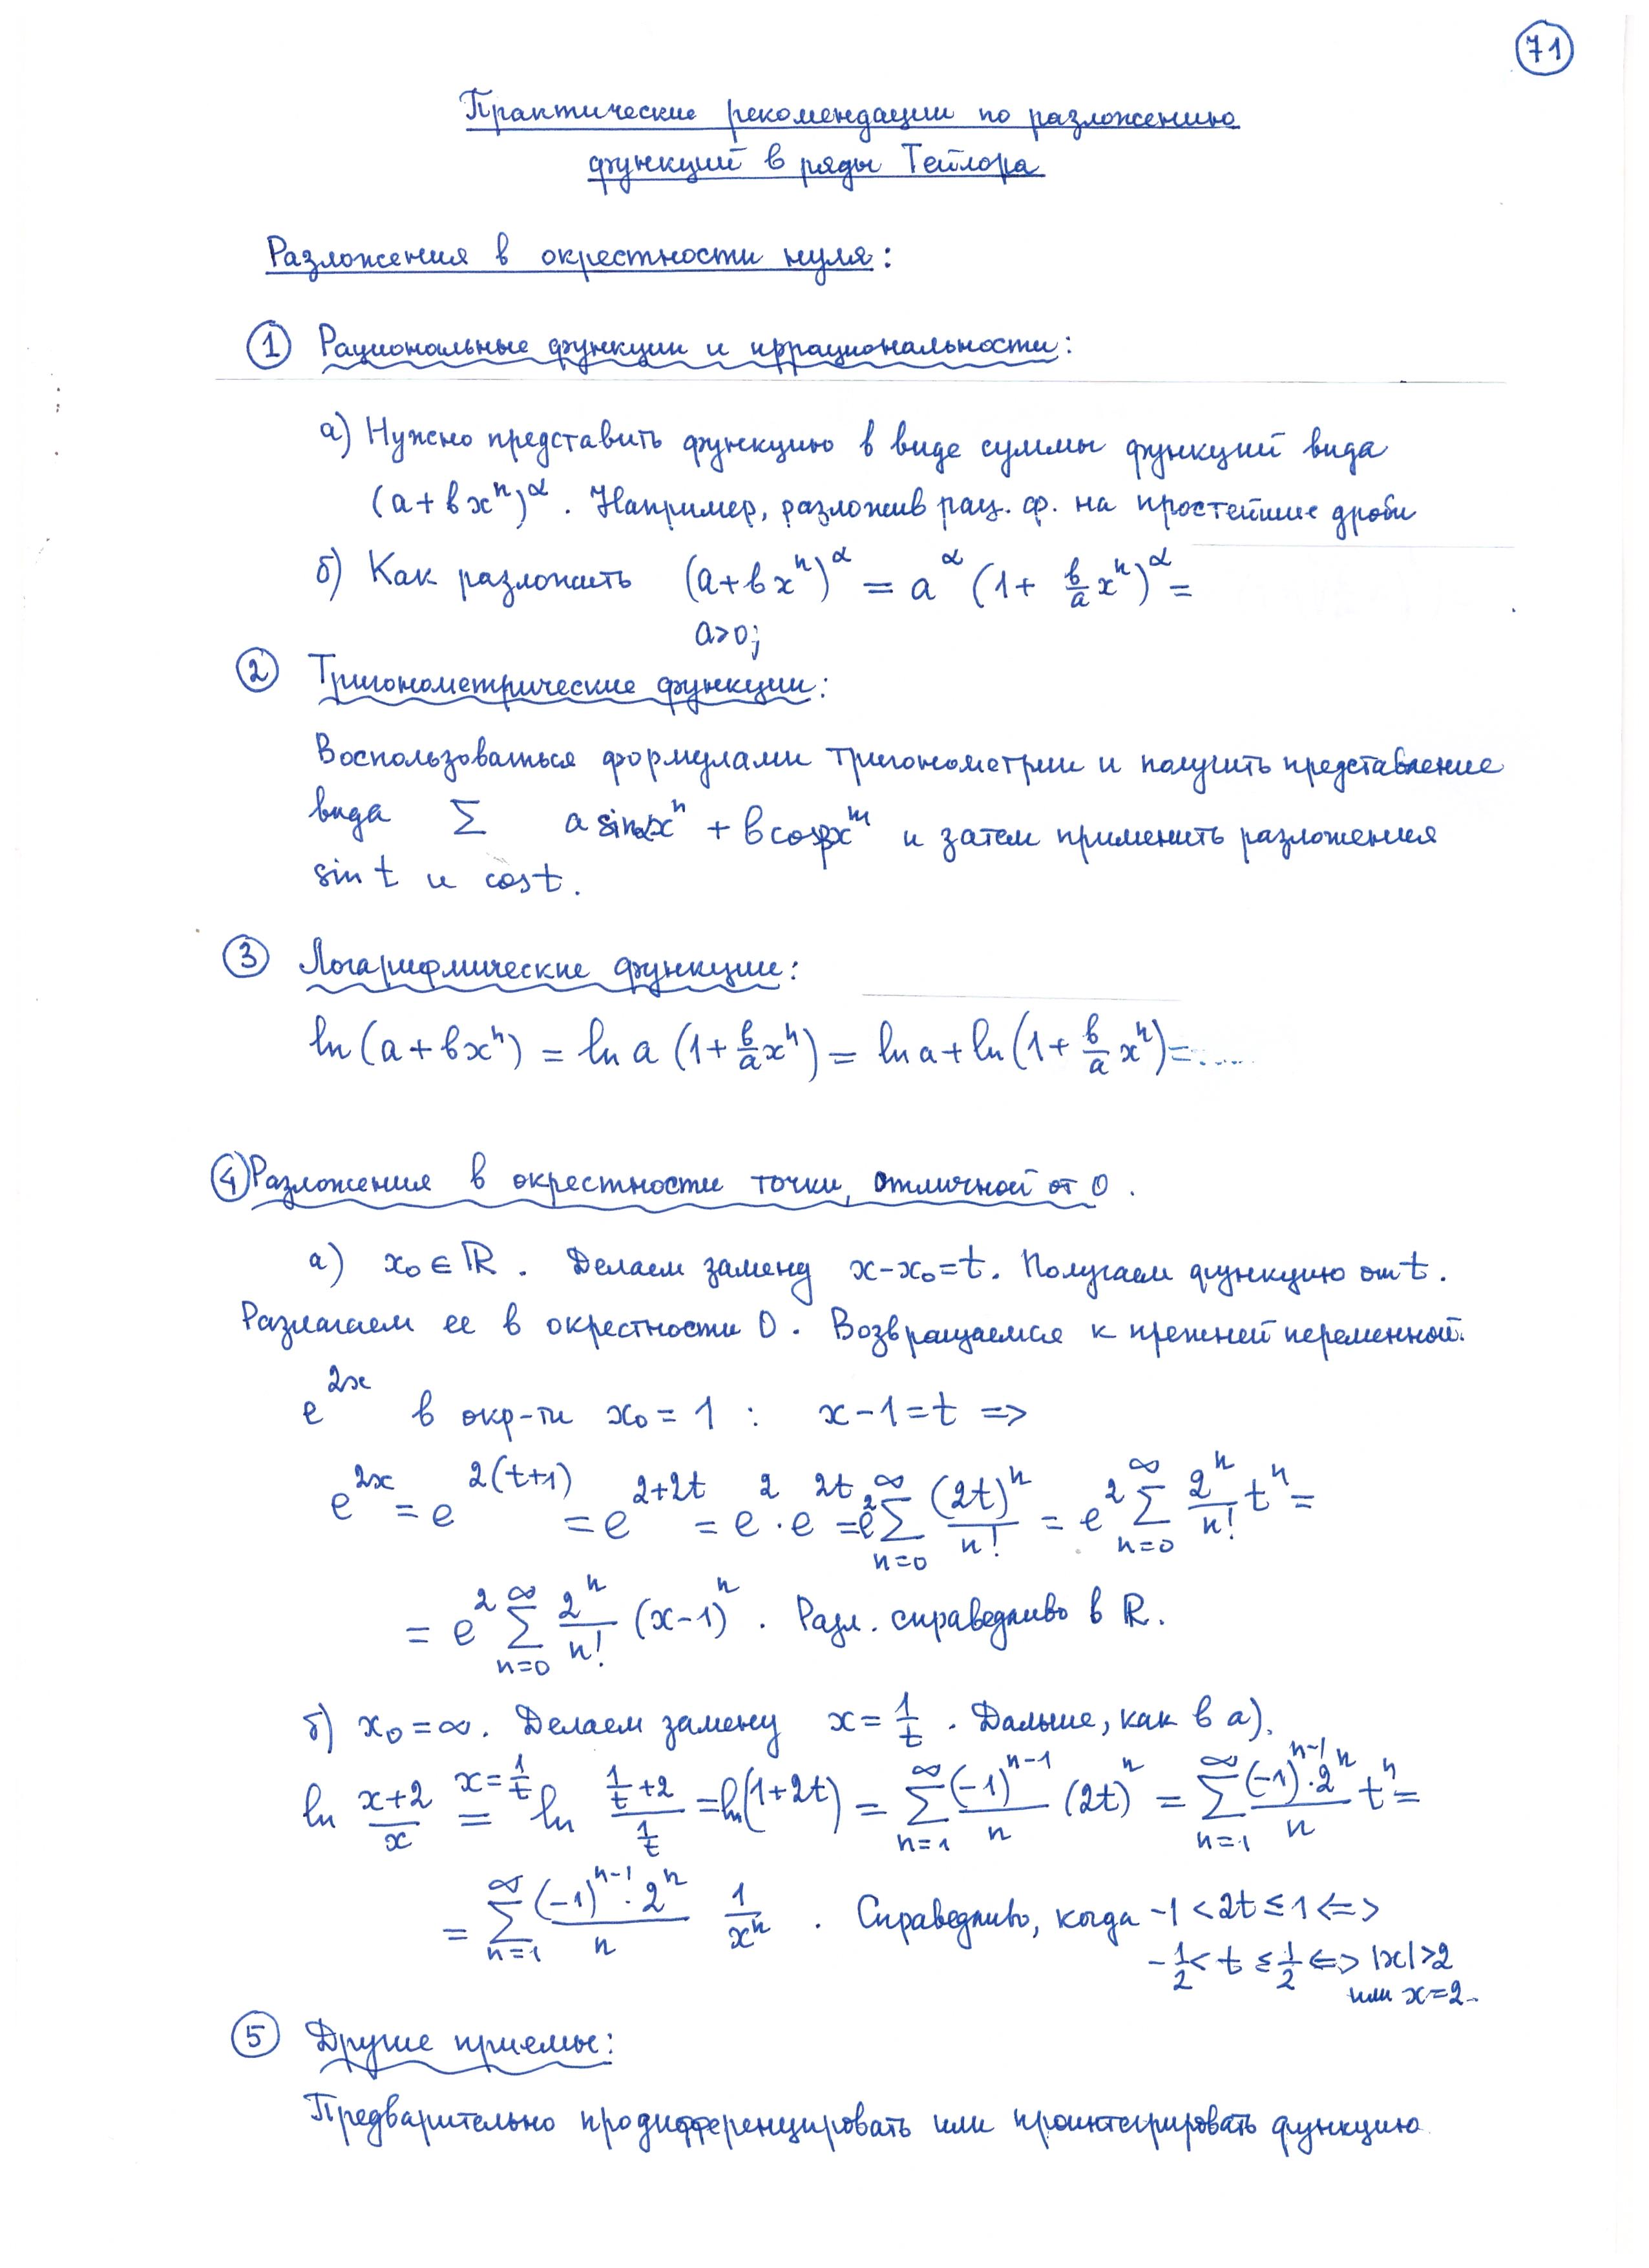 71
Практические рекомендации по разложению
функций в ряды Тейлора
Разложения в окрестности нуля:
① Рациональные функции и иррациональности:
а) Нужно представить функцию в виде суммы функций вида
(a+bxⁿ)^α. Например, разложив рац. ф. на простейшие дроби
б) Как разложить (a+bxⁿ)^α = a^α (1+ b/a xⁿ)^α =
a>0;
② Тригонометрические функции:
Воспользоваться формулами тригонометрии и получить представление
вида Σ a sin αxⁿ + b cos βx^m и затем применить разложения
sin t и cos t.
③ Логарифмические функции:
ln(a+bxⁿ) = ln a (1+ b/a xⁿ) = ln a + ln(1+ b/a xⁿ) = .....
④ Разложения в окрестности точки, отличной от 0.
а) x₀ ∈ ℝ. Делаем замену x-x₀=t. Получаем функцию от t.
Разлагаем ее в окрестности 0. Возвращаемся к прежней переменной.
e^{2x} в окр-ти x₀ = 1 : x-1=t =>
e^{2x} = e^{2(t+1)} = e^{2+2t} = e² · e^{2t} = e² Σ_{n=0}^∞ (2t)ⁿ/n! = e² Σ_{n=0}^∞ 2ⁿ/n! tⁿ =
= e² Σ_{n=0}^∞ 2ⁿ/n! (x-1)ⁿ. Разл. справедливо в ℝ.
б) x₀ = ∞. Делаем замену x = 1/t. Дальше, как в а).
ln (x+2)/x =^{x=1/t} ln (1/t +2)/(1/t) = ln(1+2t) = Σ_{n=1}^∞ (-1)^{n-1}/n (2t)ⁿ = Σ_{n=1}^∞ (-1)^{n-1}·2ⁿ/n tⁿ =
= Σ_{n=1}^∞ (-1)^{n-1}·2ⁿ/n 1/xⁿ. Справедливо, когда -1<2t≤1 <=>
-1/2 < t ≤ 1/2 <=> |x|>2
или x=2.
⑤ Другие приемы:
Предварительно продифференцировать или проинтегрировать функцию